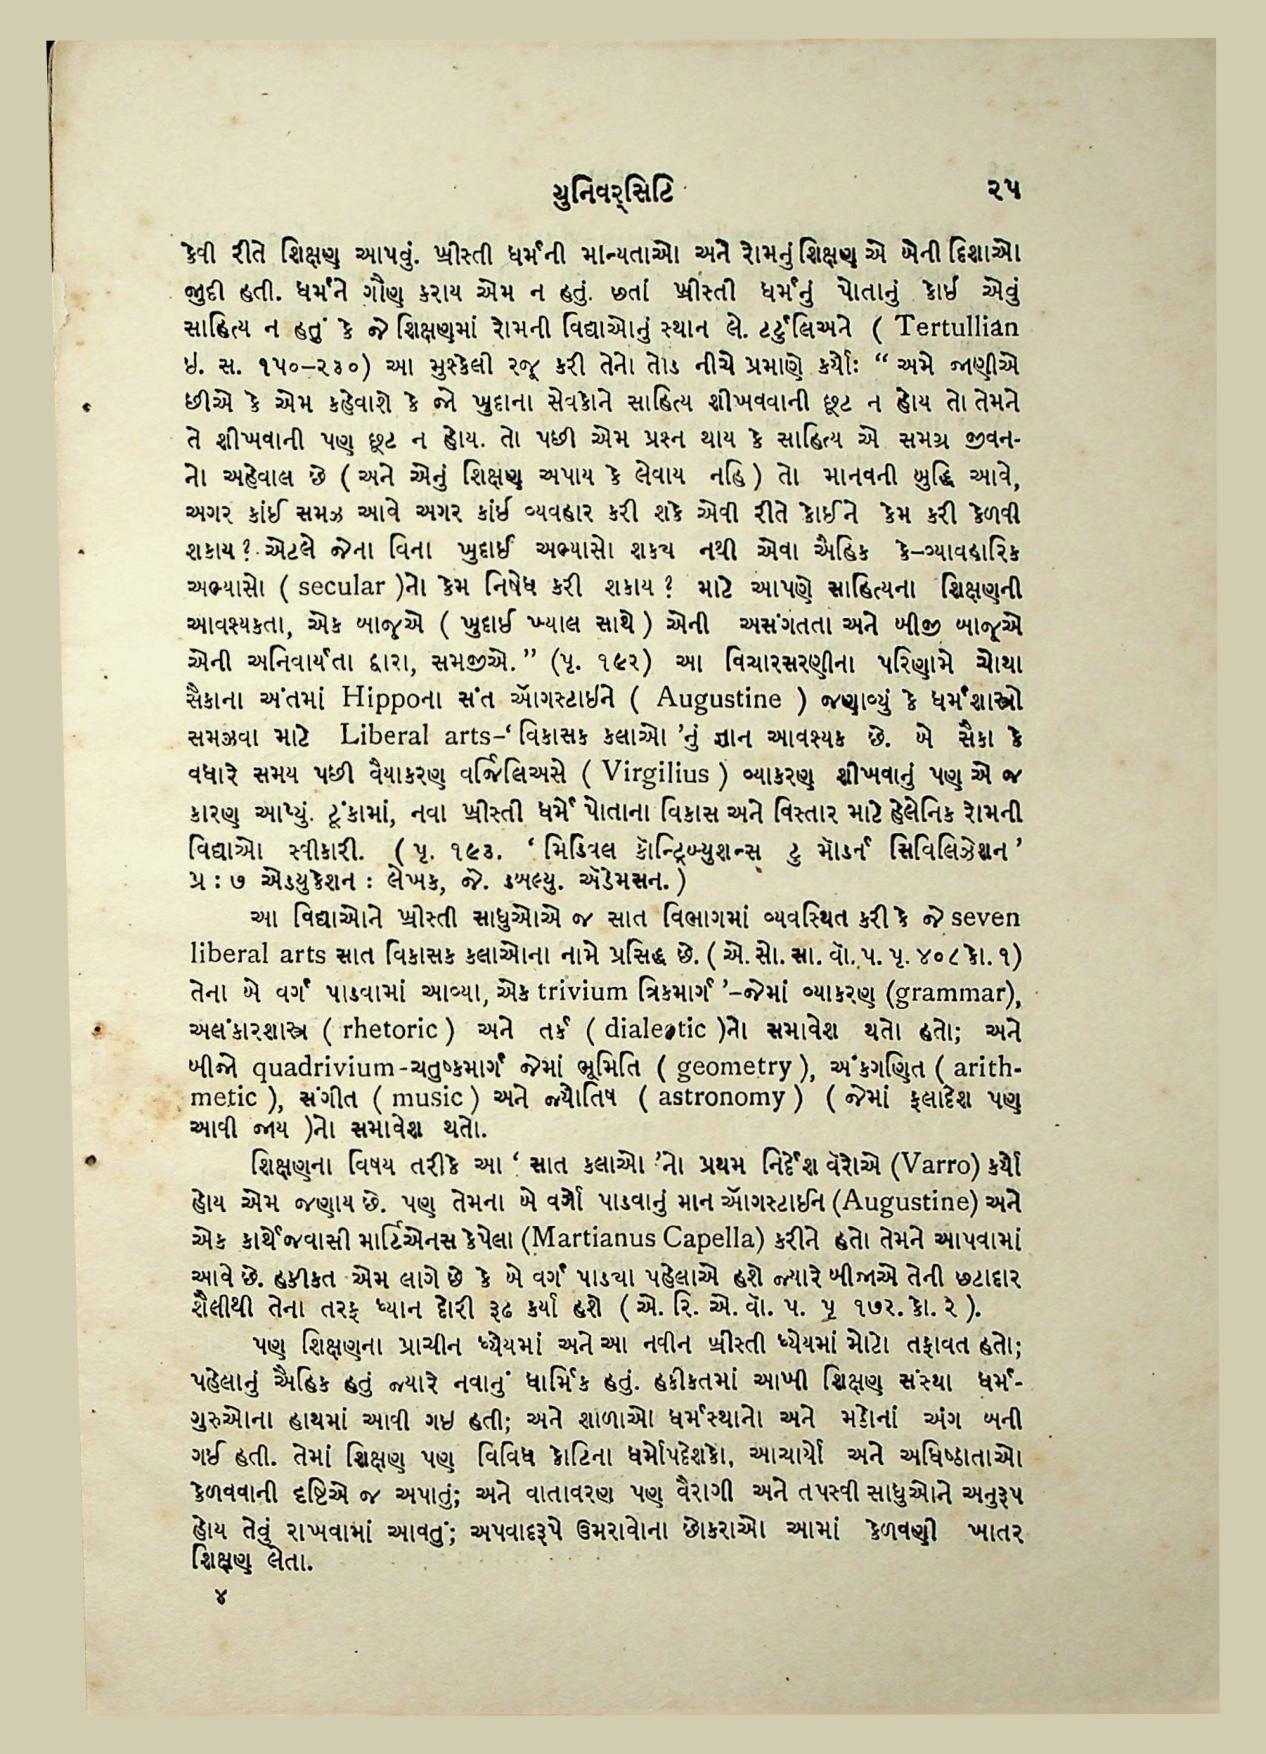 યુનિવર્સિટિ ૨૫
કેવી રીતે શિક્ષણ આપવું. ખ્રીસ્તી ધર્મની માન્યતાઓ અને રોમનું શિક્ષણ એ બેની દિશાઓ
જુદી હતી. ધર્મને ગૌણ કરાય એમ ન હતું. છતાં ખ્રીસ્તી ધર્મનું પોતાનું કોઈ એવું
સાહિત્ય ન હતું કે જે શિક્ષણમાં રોમની વિદ્યાઓનું સ્થાન લે. ટર્ટુલિઅને ( Tertullian
ઇ. સ. ૧૫૦–૨૩૦) આ મુશ્કેલી રજૂ કરી તેનો તોડ નીચે પ્રમાણે કર્યોઃ “ અમે જાણીએ
છીએ કે એમ કહેવાશે કે જો ખુદાના સેવકોને સાહિત્ય શીખવવાની છૂટ ન હોય તો તેમને
તે શીખવાની પણ છૂટ ન હોય. તો પછી એમ પ્રશ્ન થાય કે સાહિત્ય એ સમગ્ર જીવન-
નો અહેવાલ છે ( અને એનું શિક્ષણ અપાય કે લેવાય નહિ ) તો માનવની બુદ્ધિ આવે,
અગર કાંઈ સમઝ આવે અગર કાંઈ વ્યવહાર કરી શકે એવી રીતે કોઈને કેમ કરી કેળવી
શકાય ? એટલે જેના વિના ખુદાઈ અભ્યાસો શક્ય નથી એવા ઐહિક કે–વ્યાવહારિક
અભ્યાસો ( secular )નો કેમ નિષેધ કરી શકાય ? માટે આપણે સાહિત્યના શિક્ષણની
આવશ્યકતા, એક બાજૂએ ( ખુદાઈ ખ્યાલ સાથે ) એની અસંગતતા અને બીજી બાજૂએ
એની અનિવાર્યતા દ્વારા, સમજીએ. ” (પૃ. ૧૯૨) આ વિચારસરણીના પરિણામે ચોથા
સૈકાના અંતમાં Hippoના સંત ઑગસ્ટાઇને ( Augustine ) જણાવ્યું કે ધર્મશાસ્ત્રો
સમઝવા માટે Liberal arts–‘ વિકાસક કલાઓ ’નું જ્ઞાન આવશ્યક છે. બે સૈકા કે
વધારે સમય પછી વૈયાકરણ વર્જિલિઅસે ( Virgilius ) વ્યાકરણ શીખવાનું પણ એ જ
કારણ આપ્યું. ટૂંકામાં, નવા ખ્રીસ્તી ધર્મે પોતાના વિકાસ અને વિસ્તાર માટે હેલેનિક રોમની
વિદ્યાઓ સ્વીકારી. ( પૃ. ૧૯૩. ‘ મિડિવલ કૉન્ટ્રિબ્યુશન્સ ટુ મૉડર્ન સિવિલિઝેશન ’
પ્ર : ૭ એડયુકેશન : લેખક, જે. ડબલ્યુ. ઍડેમસન. )
આ વિદ્યાઓને ખ્રીસ્તી સાધુઓએ જ સાત વિભાગમાં વ્યવસ્થિત કરી કે જે seven
liberal arts સાત વિકાસક કલાઓના નામે પ્રસિદ્ધ છે. ( એ. સો. સા. વૉ. ૫. પૃ. ૪૦૮ કો. ૧)
તેના બે વર્ગ પાડવામાં આવ્યા, એક trivium ત્રિકમાર્ગ ’–જેમાં વ્યાકરણ (grammar),
અલંકારશાસ્ત્ર ( rhetoric ) અને તર્ક ( dialectic )નો સમાવેશ થતો હતો; અને
બીજો quadrivium-ચતુષ્કમાર્ગ જેમાં ભૂમિતિ ( geometry ), અંકગણિત ( arith-
metic ), સંગીત ( music ) અને જ્યોતિષ ( astronomy ) ( જેમાં ફલાદેશ પણ
આવી જાય )નો સમાવેશ થતો.
શિક્ષણના વિષય તરીકે આ ‘ સાત કલાઓ ’નો પ્રથમ નિર્દેશ વૅરોએ (Varro) કર્યો
હોય એમ જણાય છે. પણ તેમના બે વર્ગો પાડવાનું માન ઑગસ્ટાઇન (Augustine) અને
એક કાર્થેજવાસી માર્ટિએનસ કેપેલા (Martianus Capella) કરીને હતો તેમને આપવામાં
આવે છે. હકીકત એમ લાગે છે કે બે વર્ગ પાડ્યા પહેલાએ હશે જ્યારે બીજાએ તેની છટાદાર
શૈલીથી તેના તરફ ધ્યાન દોરી રૂઢ કર્યા હશે ( એ. રિ. એ. વૉ. ૫. પૃ ૧૭૨. કો. ૨ ).
પણ શિક્ષણના પ્રાચીન ધ્યેયમાં અને આ નવીન ખ્રીસ્તી ધ્યેયમાં મોટો તફાવત હતો;
પહેલાનું ઐહિક હતું જ્યારે નવાનું ધાર્મિક હતું. હકીકતમાં આખી શિક્ષણ સંસ્થા ધર્મ-
ગુરુઓના હાથમાં આવી ગઇ હતી; અને શાળાઓ ધર્મસ્થાનો અને મઠોનાં અંગ બની
ગઈ હતી. તેમાં શિક્ષણ પણ વિવિધ કોટિના ધર્મોપદેશકો, આચાર્યો અને અધિષ્ઠાતાઓ
કેળવવાની દૃષ્ટિએ જ અપાતું; અને વાતાવરણ પણ વૈરાગી અને તપસ્વી સાધુઓને અનુરૂપ
હોય તેવું રાખવામાં આવતું; અપવાદરૂપે ઉમરાવોના છોકરાઓ આમાં કેળવણી ખાતર
શિક્ષણ લેતા.
૪